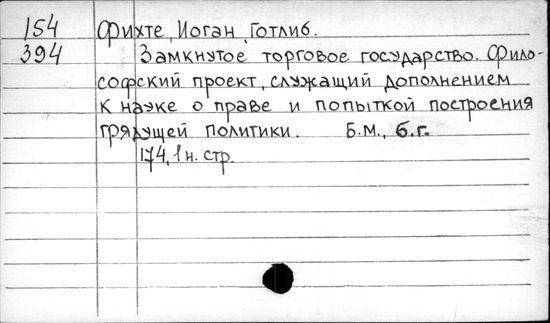 154 Фихте, Иоган Готлиб.
394 Замкнутое торговое государство. Фило-
софский проект, служащий дополнением
к науке о праве и попыткой построения
грядущей политики. Б.М., б.г.
174, 1 н. стр.